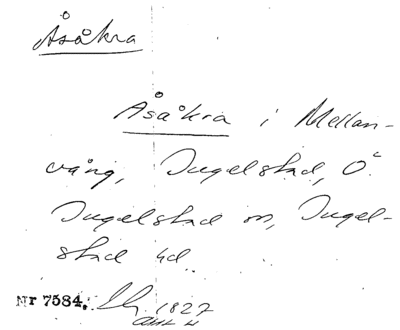 Åsåkra
Åsåkra i Mellan-
vång, Ingelstad, Ö.
Ingelstad sn, Ingel-
stad hd
Nr 7584. 1827
akt 4